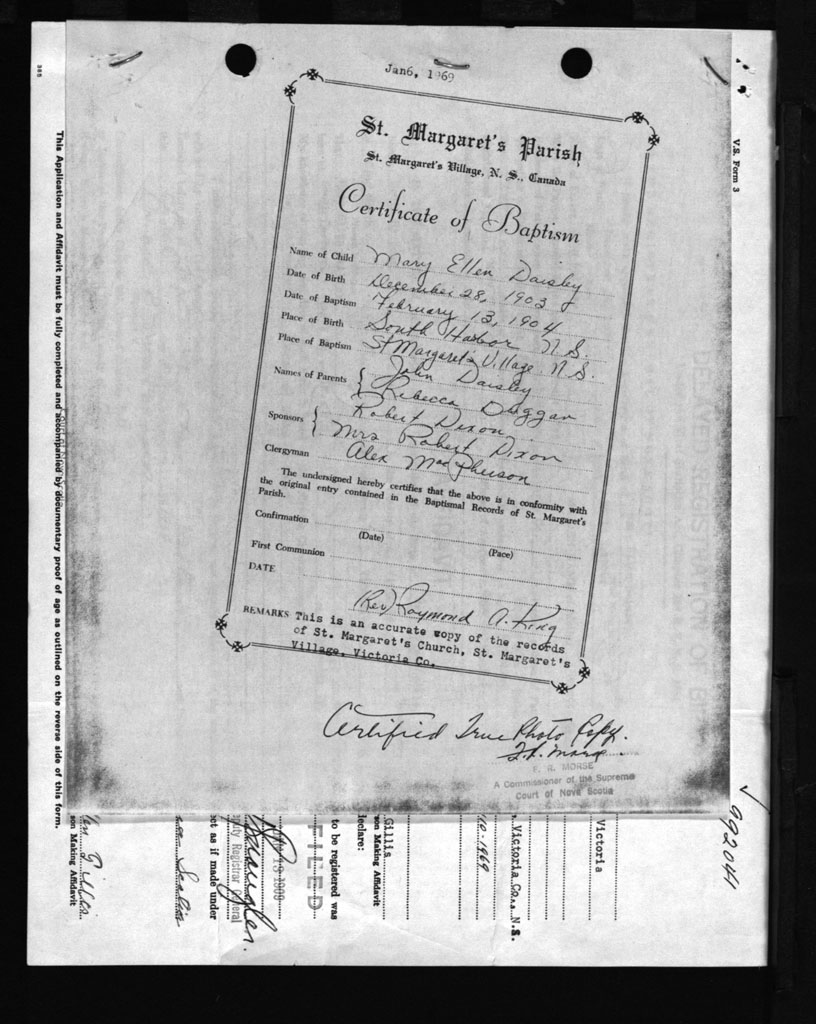 Jan6, 1969
St. Margaret's Parish
St. Margaret's Village, N. S., Canada
Certificate of Baptism
Name of Child Mary Ellen Daisley
Date of Birth December 28, 1903
Date of Baptism February 13, 1904
Place of Birth South Harbor N.S.
Place of Baptism St Margarets Village N.S.
Names of Parents { John Daisley
Ribecca Duggan
Sponsors { Robert Dixon
Mrs Robert Dixon
Clergyman Alex MacPherson
The undersigned hereby certifies that the above is in conformity with
the original entry contained in the Baptismal Records of St. Margaret's
Parish.
Confirmation
(Date) (Pace)
First Communion
DATE
(Rev) Raymond A. King
REMARKS This is an accurate copy of the records
of St. Margaret's Church, St. Margaret's
Village, Victoria Co.
Certified True Photo Copy.
F. R. Morse
F. R. MORSE
A Commissioner of the Supreme
Court of Nova Scotia
V.S. Form 3
99204
385
This Application and Affidavit must be fully completed and accompanied by documentary proof of age as outlined on the reverse side of this form.
Victoria
, Victoria Co., N.S.
10-1969
Gillis
son Making Affidavit
eclare:
to be registered was
FILED
puty Registrar General
not as if made under
son Making Affidavit